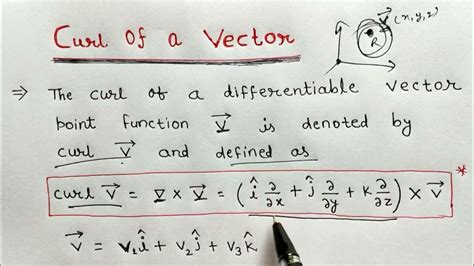 Curl Of a Vector
V⃗ (x,y,z)
R
⇒ The curl of a differentiable vector
point function V⃗ is denoted by
curl V⃗ and defined as
curl V⃗ = ∇ × V⃗ = (î ∂/∂x + ĵ ∂/∂y + k ∂/∂z) × V⃗ *
V⃗ = v₁î + v₂ĵ + v₃k̂